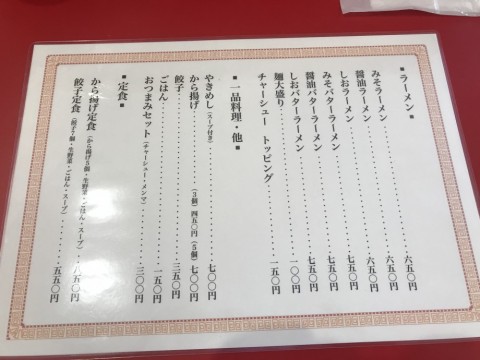 ■ラーメン■
みそラーメン 六五〇円
醤油ラーメン 六五〇円
しおラーメン 六五〇円
みそバターラーメン 七五〇円
醤油バターラーメン 七五〇円
しおバターラーメン 七五〇円
麺大盛り 一〇〇円
チャーシュー トッピング 一五〇円
■一品料理・他■
やきめし(スープ付き) 七〇〇円
から揚げ (3個)四五〇円(5個)七〇〇円
餃子 三五〇円
ごはん 一五〇円
おつまみセット(チャーシュー・メンマ) 三〇〇円
■定食■
から揚げ定食(から揚げ5個・生野菜・ごはん・スープ) 八五〇円
餃子定食(餃子 個・生野菜・ごはん・スープ) 五五〇円